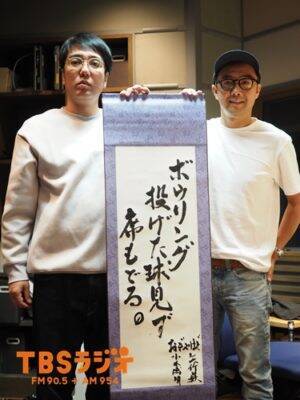 ボウリング
投げた球見ず
席もどる。
TBSラジオ
FM 90.5 + AM 954